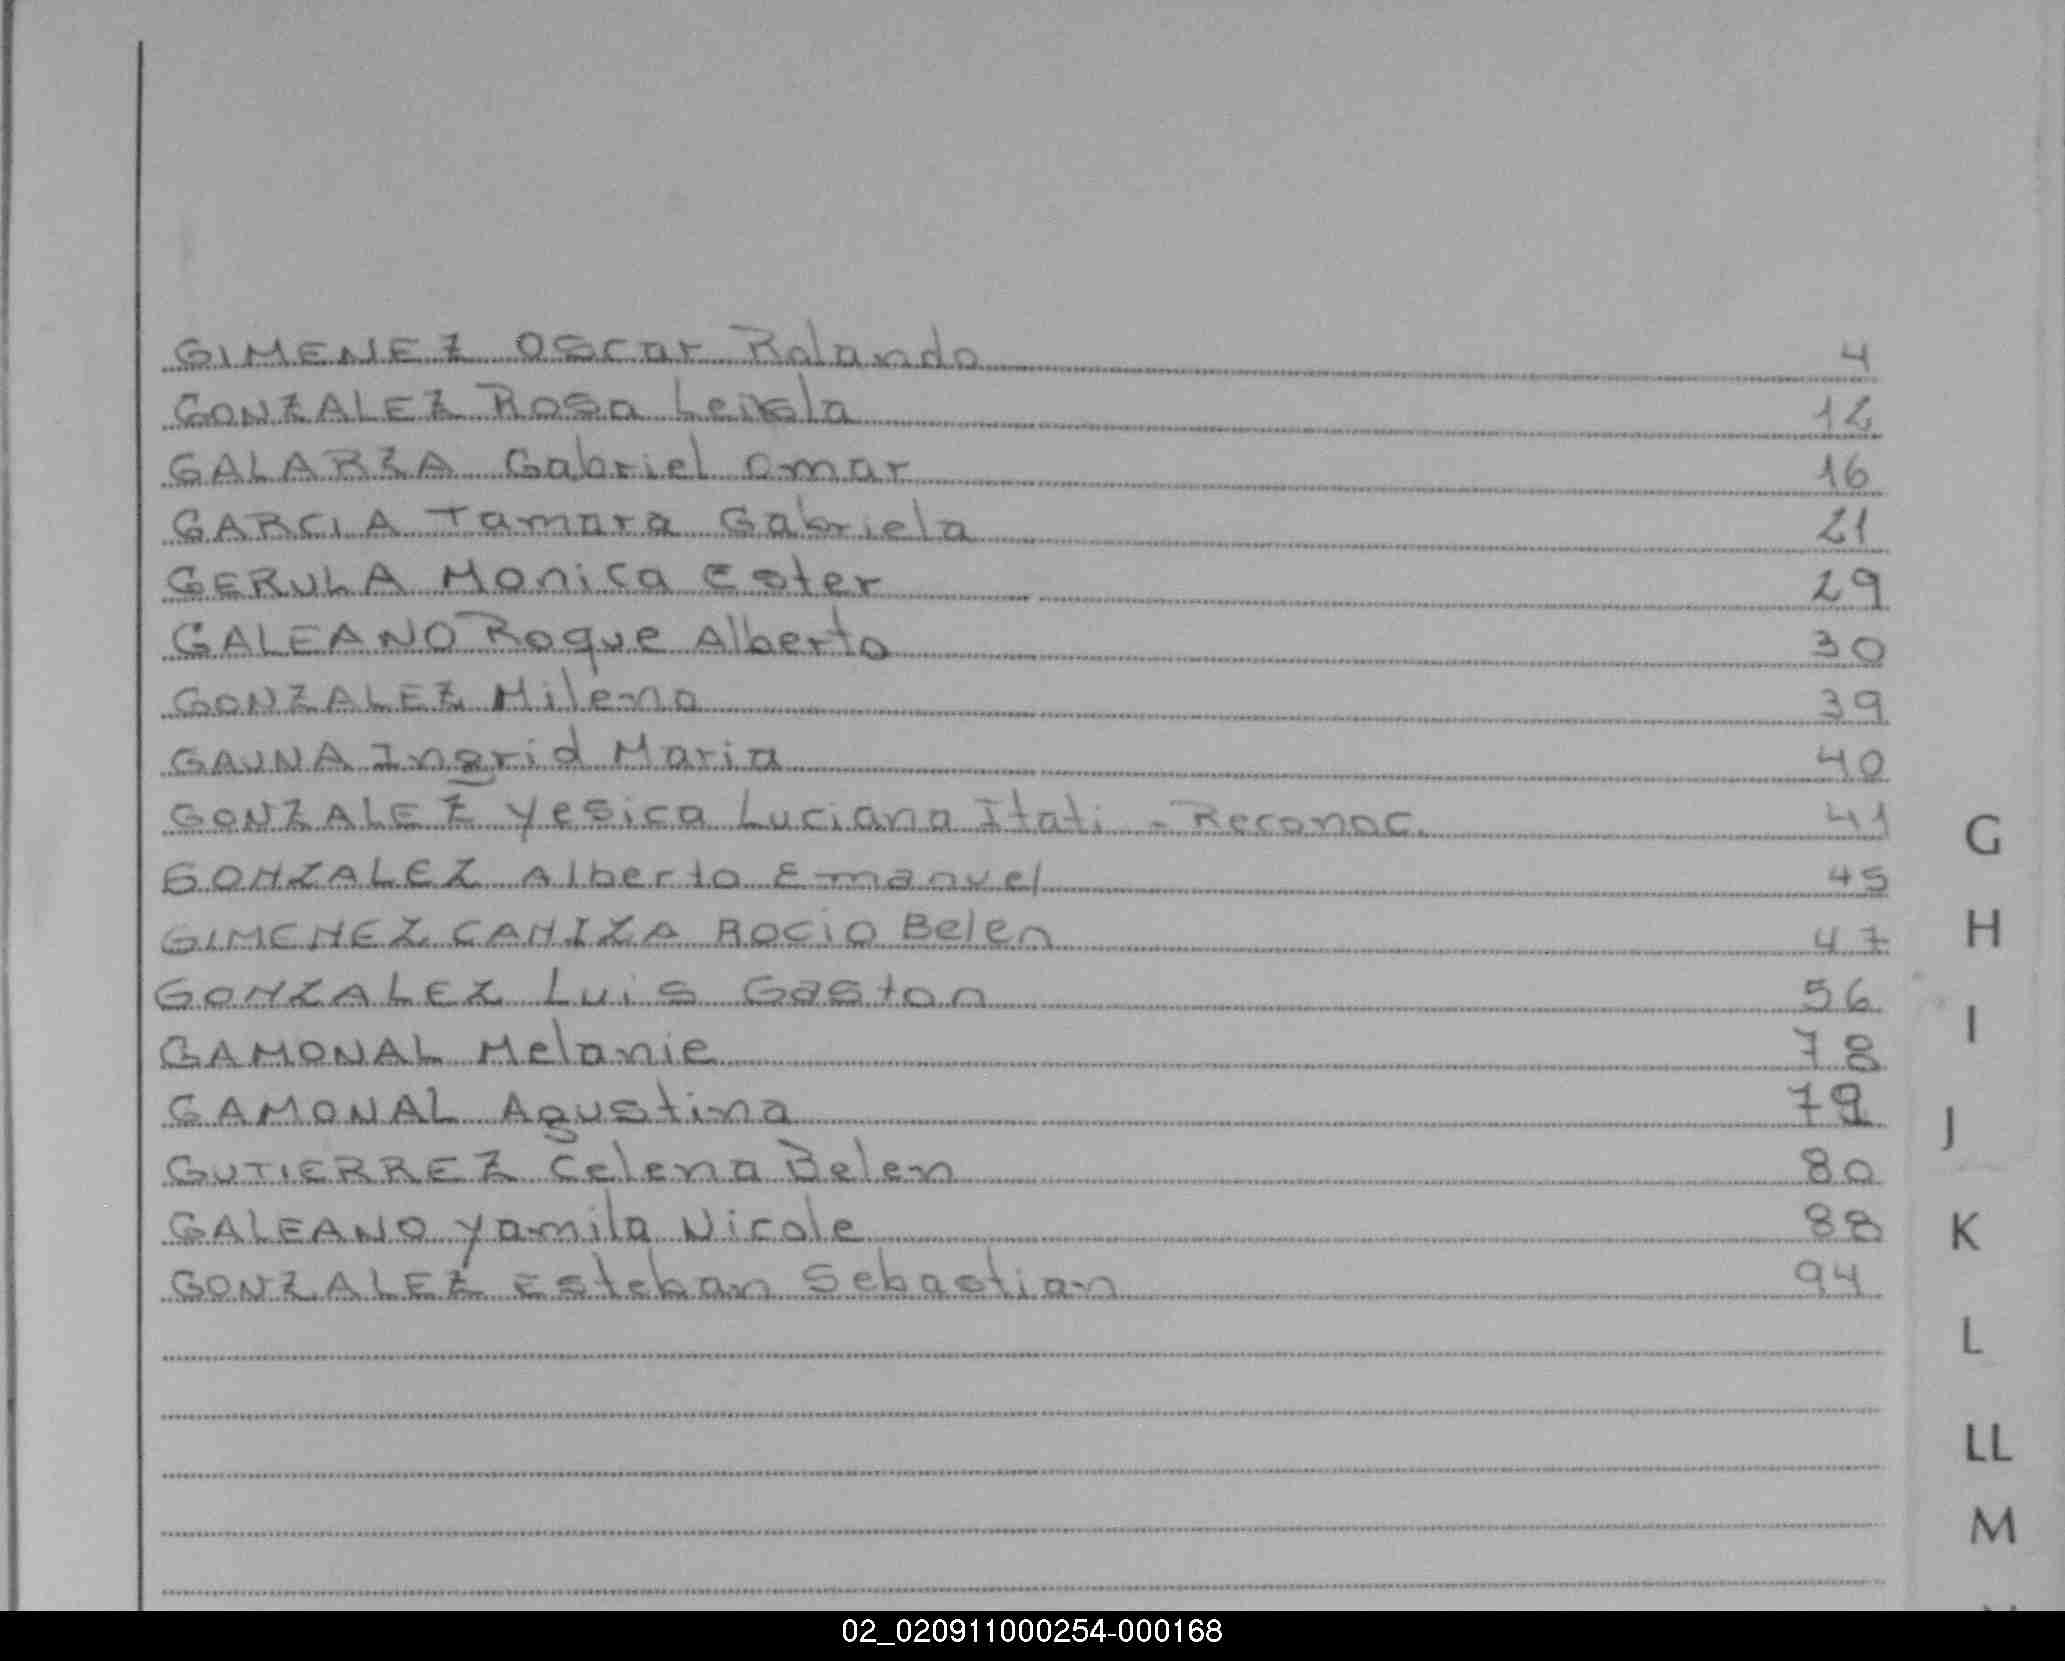 GIMENEZ Oscar Rolando 4
GONZALEZ Rosa 12
GALARZA Gabriel Omar 16
GARCIA Tamara Gabriela 21
GERULA Monica Ester 29
GALEANO Roque Alberto 30
GONZALEZ Milena 39
GAUNA Ingrid Maria 40
GONZALEZ Yesica Luciana Itati - Reconoc. 41
GONZALEZ Alberto Emanuel 45
GIMENEZ CANIZA Rocio Belen 47
GONZALEZ Luis Gaston 56
GAMONAL Melanie 78
GAMONAL Agustina 79
GUTIERREZ Celena Belen 80
GALEANO Yamila Nicole 88
GONZALEZ Esteban Sebastian 94
G
H
I
J
K
L
LL
M
02_020911000254-000168